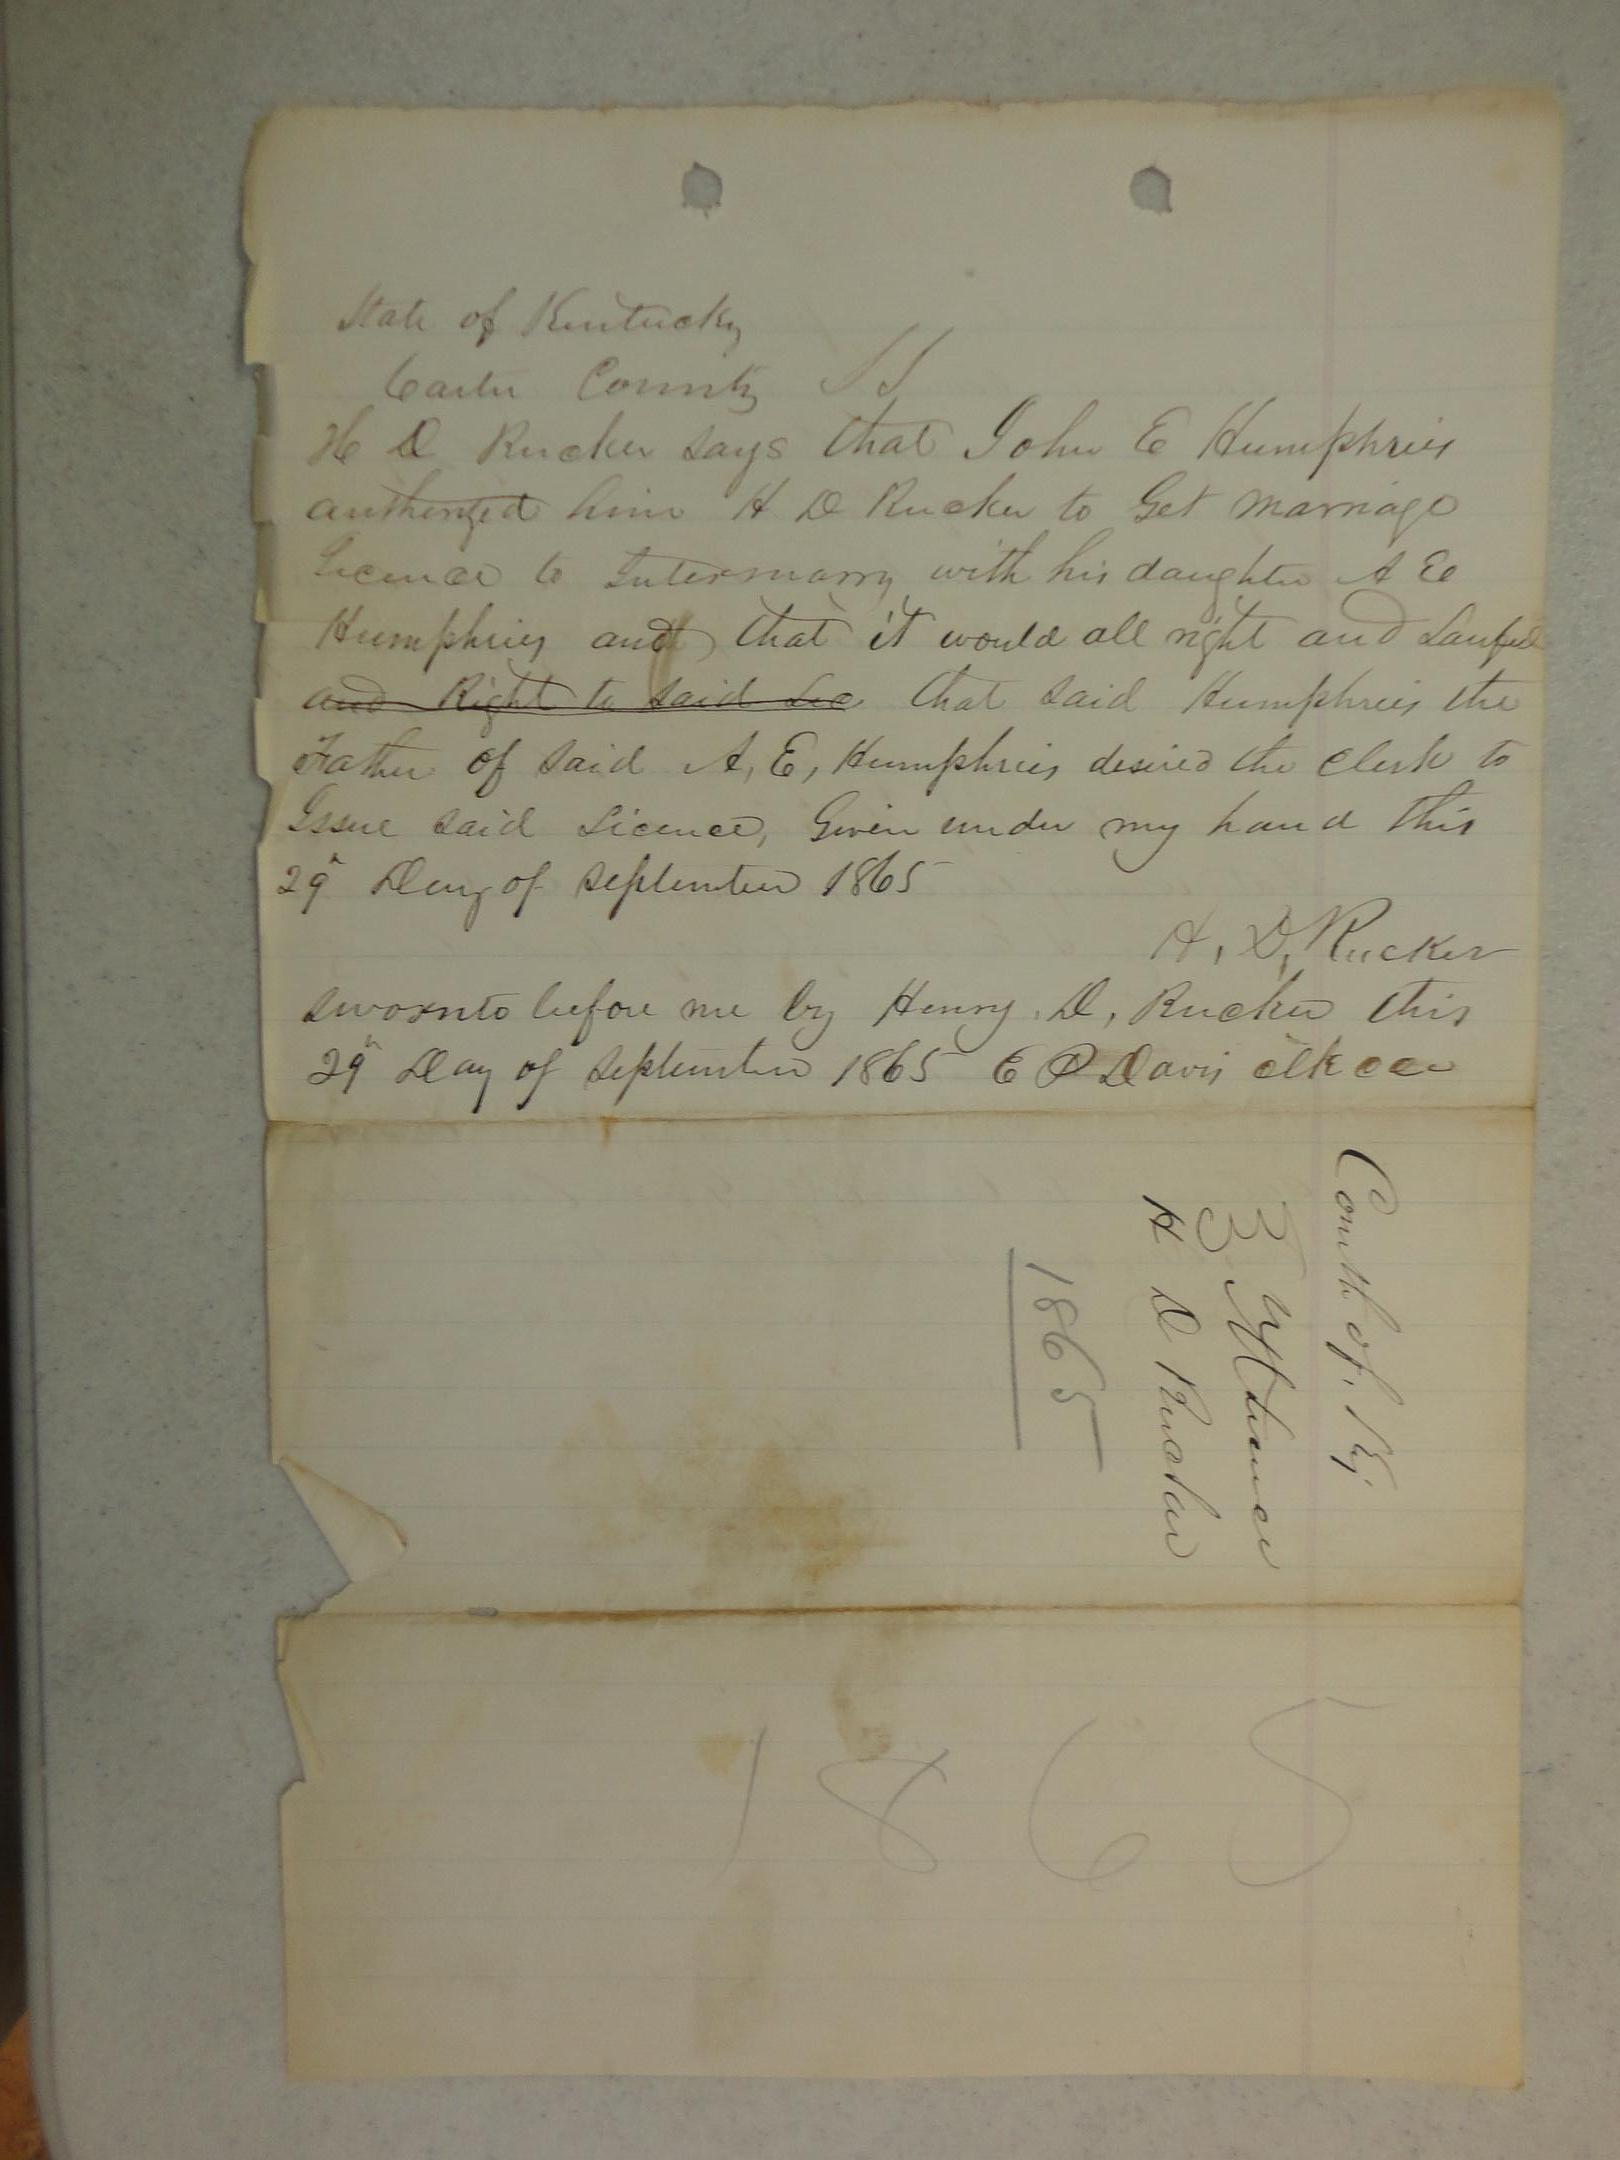 State of Kentucky
Carter County SS
H D Rucker says that John E Humphries
authorized him H D Rucker to Get marriage
Licence to Intermarry with his daughter A E
Humphries and that it would all right and Lawful
and Right to said Lic that said Humphries the
Father of said A, E, Humphries desired the Clerk to
Issue said Licence, Given under my hand this
29" Day of September 1865
H, D, Rucker
sworn to before me by Henry. D, Rucker this
29" Day of September 1865 E P Davis clk ccc
Comth of, Ky
H D Rucker
1865
1865